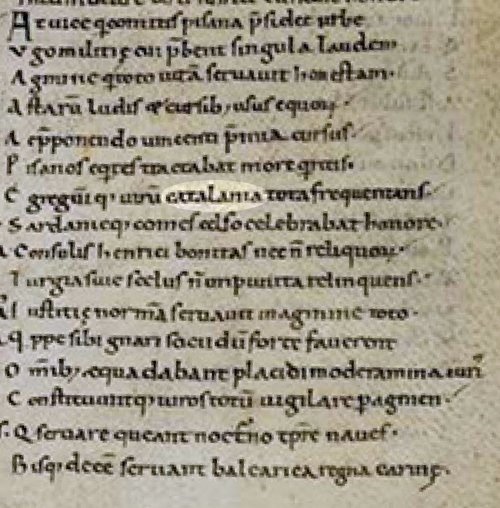 At uice q comitis pisana p̄sidet urbe
Vgo militię cui p̄bent singula laudem
Agmine q toto uitā seruauit honestam.
Astarū ludis & cursib; usus equoꝝ.
A p̄ponendo uincenti p̄mia cursus.
Pisanos eqtes tractabat more qritis.
Egregiū q; uirū catalania tota frequentans.
Sardanieq; comes celso celebrabat honore.
Consulis henrici bonitas nec n̄ reliquoꝝ.
Iurgia siue scelus n̄ inpunita relinquens.
Iustitię normā seruauit in agmine toto.
Qppe sibi gnari socii dū forte fauerent
Om̄ib; ęqua dabant placidi moderamina iuris
Constituuntq; uiros totū uigilare p agmen.
Q seruare queant nocťno tp̄re naues.
Bisq; decē seruant balearica regna carinę.